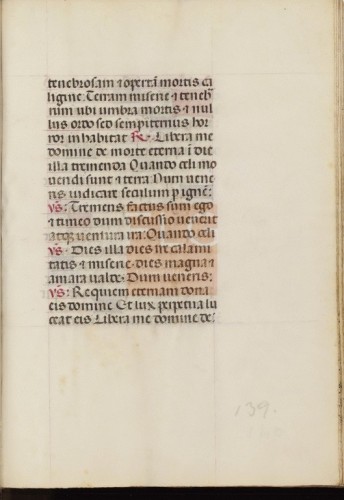 tenebrosam & opertã mortis ca
ligine. Terram miserie & teneb
rum ubi umbra mortis & nul
lus ordo sed sempiternus hor
ror inhabitat ℟. Libera me
domine de morte eterna ĩ die
illa tremenda Quando celi mo
vendi sunt & terra Dum vene
ris iudicare seculum p igneʒ
℣s: Tremens factus sum ego
& timeo dum discussio venerit
atqʒ ventura ira: Quando celi
℣s: Dies illa dies ire calami
tatis & miserie. dies magna &
amara valde. Dum veneris:
℣s: Requiem eternam dona
eis domine Et lux perpetua lu
ceat eis Libera me domine de:
139.